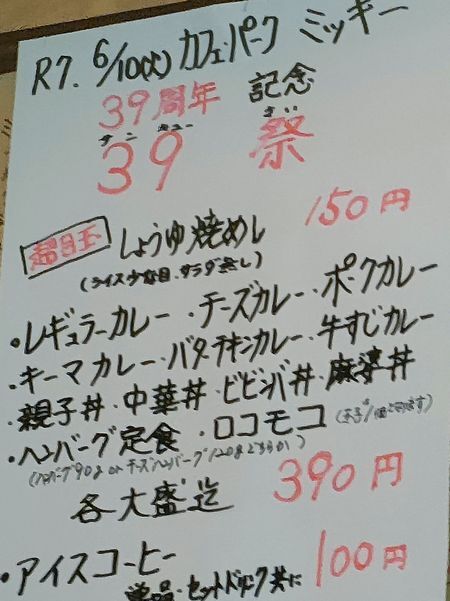 R7. 6/10(火) カフェ・パーク ミッキー
39周年 記念
サンキュー さい
39 祭
超目玉 しょうゆ焼めし 150円
(ライス少な目、サラダ無し)
・レギュラーカレー・チーズカレー・ポークカレー
・キーマカレー・バターチキンカレー・牛すじカレー
・親子丼・中華丼・ビビンバ丼・麻婆丼
・ハンバーグ定食・ロコモコ
(ハンバーグ90g or チーズハンバーグ120gどちらか)
各大盛迄 390円
・アイスコーヒー
単品・セットドリンク共に 100円